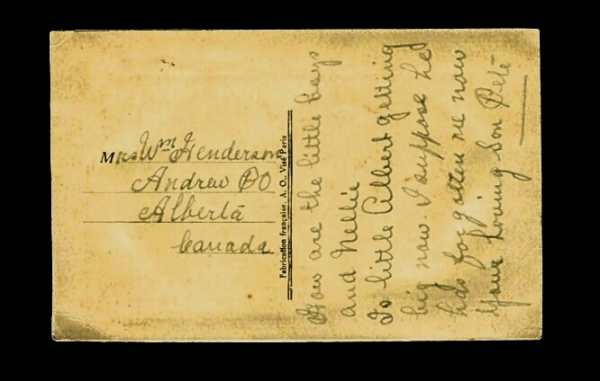 Mrs Wm Henderson
Andrew PO
Alberta
Canada
Fabrication française. A. O., Visé Paris
How are the little boys
and Nellie
Is little Albert getting
big now. I suppose he
has forgotten me now
Your loving Son Pete